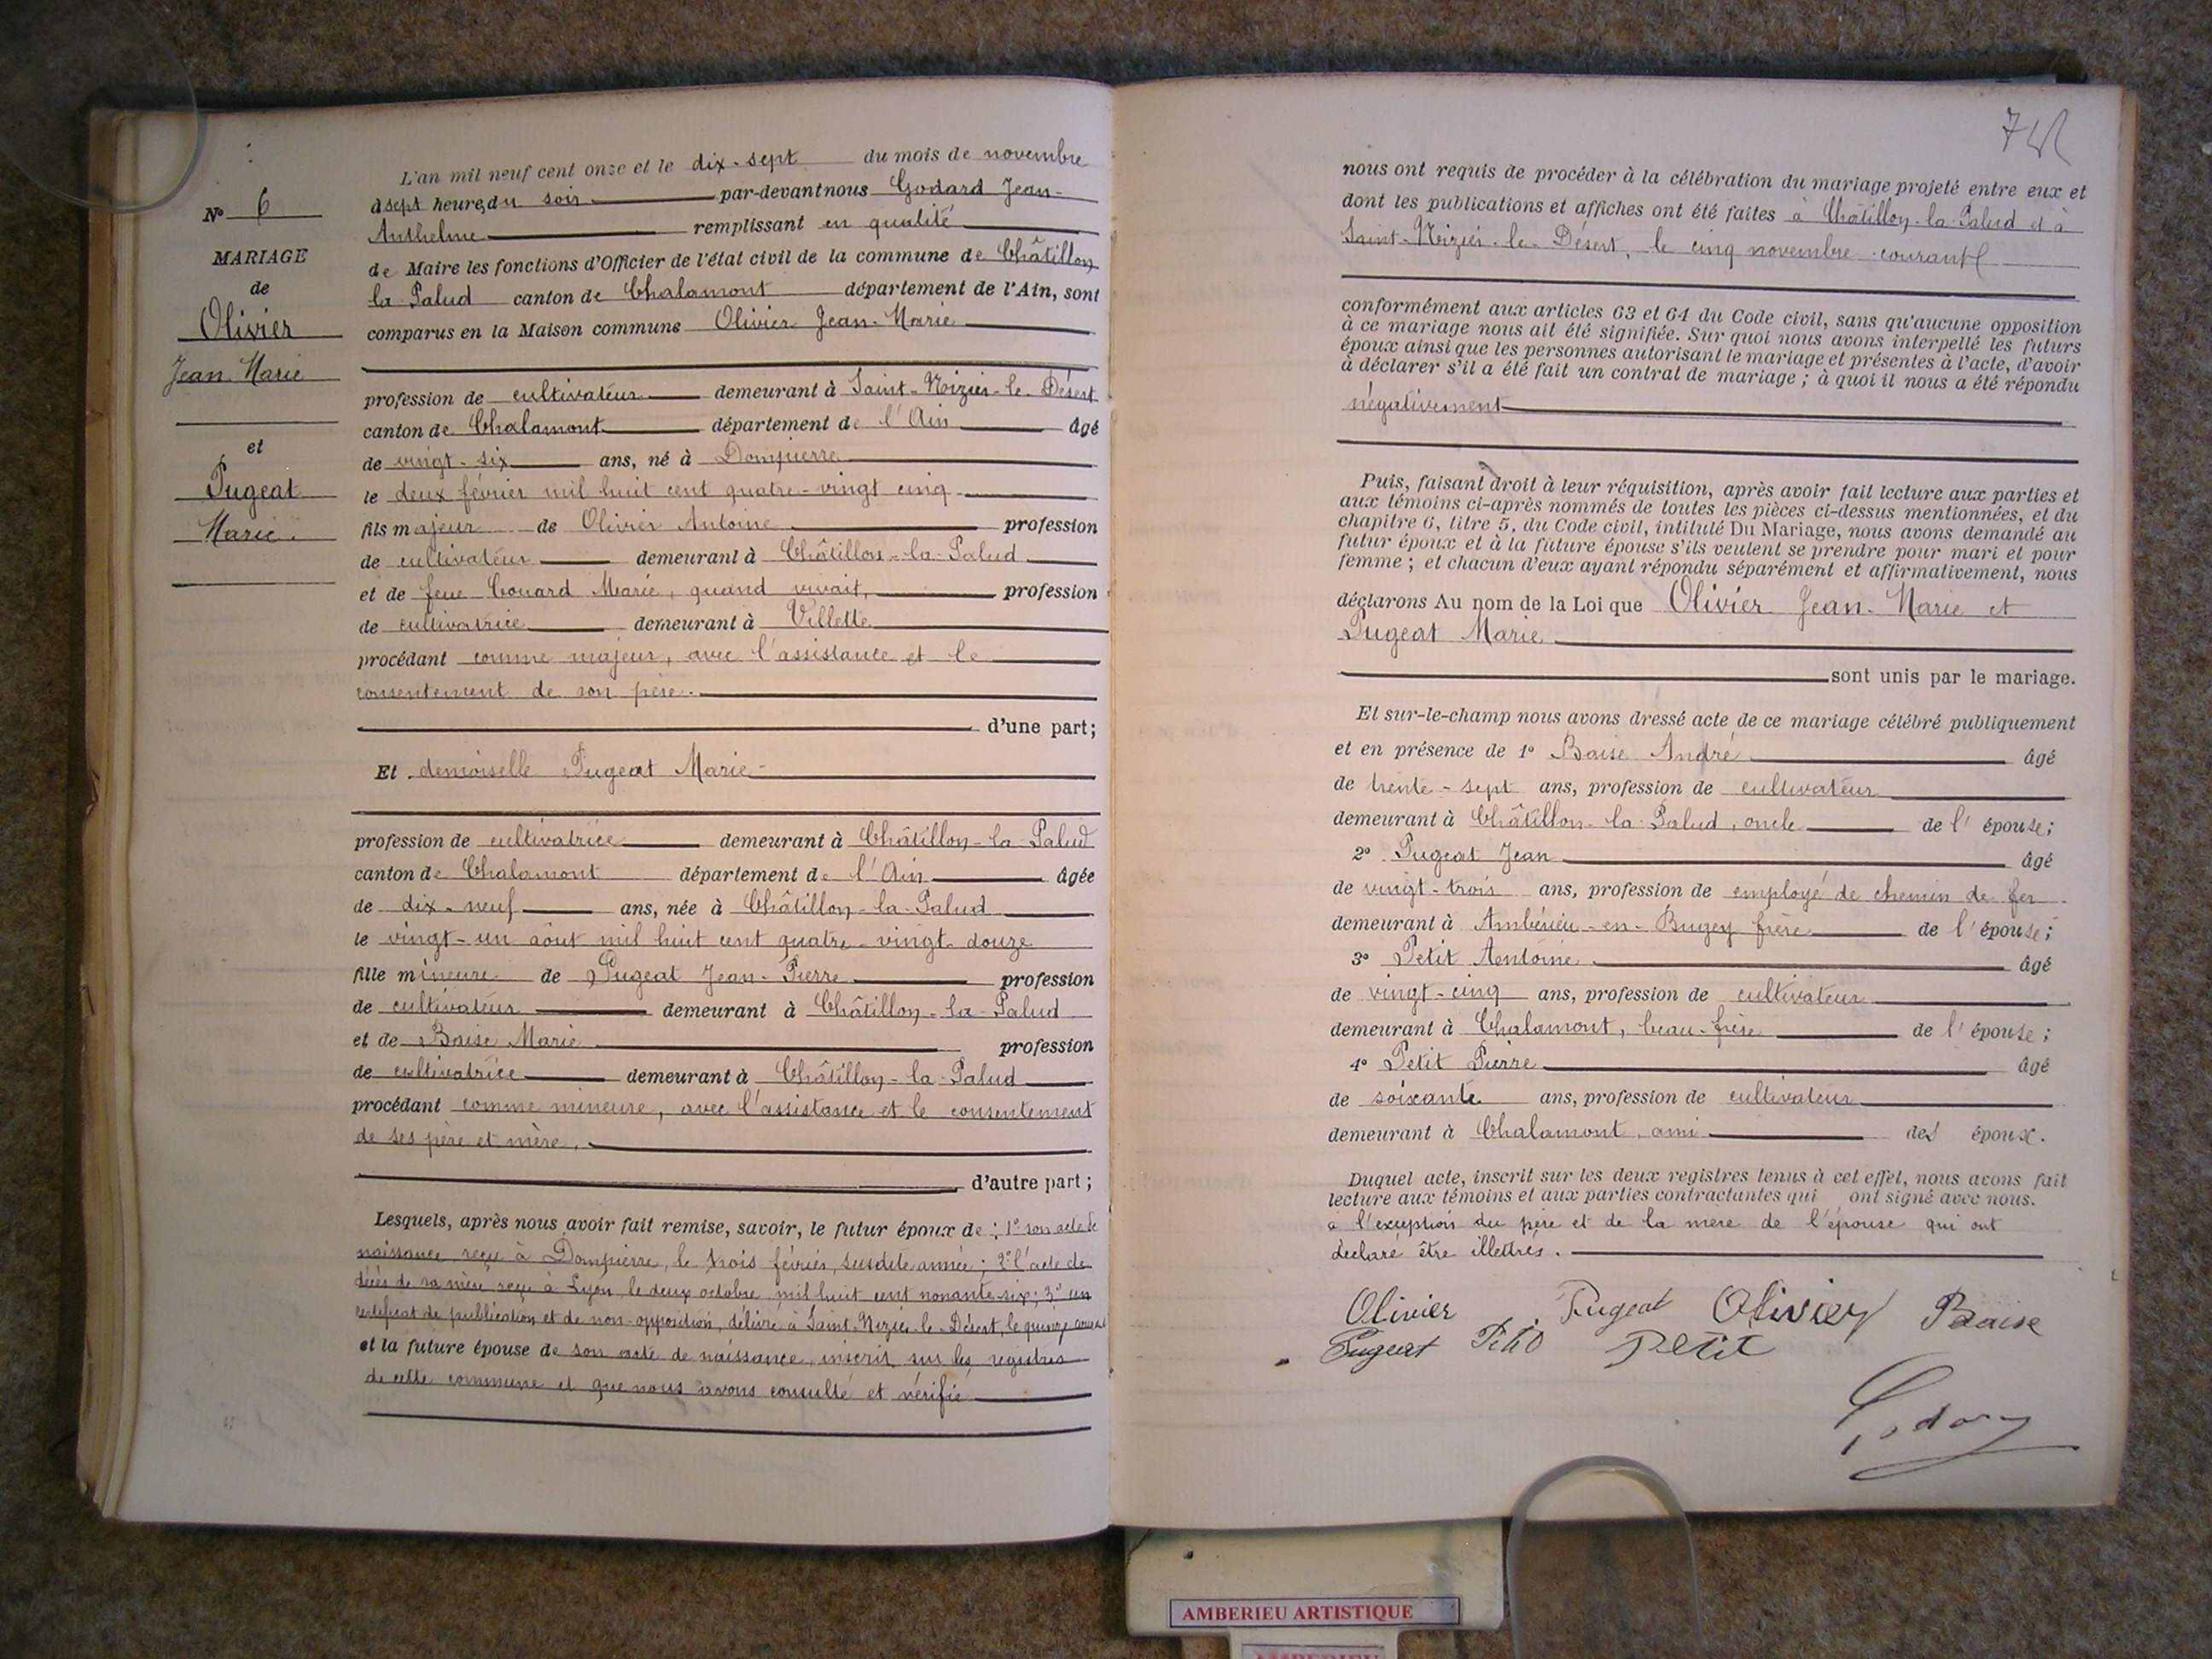 N° 6
MARIAGE
de
Olivier
Jean-Marie
et
Pugeat
Marie.
L'an mil neuf cent onze et le dix-sept du mois de novembre
à sept heures du soir par-devant nous Godard Jean-
Anthelme remplissant en qualité
de Maire les fonctions d'Officier de l'état civil de la commune de Châtillon
la-Palud canton de Chalamont département de l'Ain, sont
comparus en la Maison commune Olivier Jean-Marie
profession de cultivateur demeurant à Saint-Nizier-le-Désert
canton de Chalamont département de l'Ain âgé
de vingt-six ans, né à Dompierre
le deux février mil huit cent quatre-vingt cinq
fils majeur de Olivier Antoine profession
de cultivateur demeurant à Châtillon-la-Palud
et de feue Couard Marie, quand vivait, profession
de cultivatrice demeurant à Villette
procédant comme majeur, avec l'assistance et le
consentement de son père.
d'une part;
Et demoiselle Pugeat Marie
profession de cultivatrice demeurant à Châtillon-la-Palud
canton de Chalamont département de l'Ain âgée
de dix-neuf ans, née à Châtillon-la-Palud
le vingt-un août mil huit cent quatre-vingt-douze
fille mineure de Pugeat Jean-Pierre profession
de cultivateur demeurant à Châtillon-la-Palud
et de Baise Marie profession
de cultivatrice demeurant à Châtillon-la-Palud
procédant comme mineure, avec l'assistance et le consentement
de ses père et mère.
d'autre part;
Lesquels, après nous avoir fait remise, savoir, le futur époux de: 1° son acte de
naissance reçu à Dompierre, le trois février, susdite année; 2° l'acte de
décès de sa mère reçu à Lyon le deux octobre mil huit cent nonante-six; 3° un
certificat de publication et de non-opposition, délivré à Saint-Nizier-le-Désert, le quinze courant
et la future épouse de son acte de naissance inscrit sur les registres
de cette commune et que nous avons consulté et vérifié
nous ont requis de procéder à la célébration du mariage projeté entre eux et
dont les publications et affiches ont été faites à Châtillon-la-Palud et à
Saint-Nizier-le-Désert, le cinq novembre courant
conformément aux articles 63 et 64 du Code civil, sans qu'aucune opposition
à ce mariage nous ait été signifiée. Sur quoi nous avons interpellé les futurs
époux ainsi que les personnes autorisant le mariage et présentes à l'acte, d'avoir
à déclarer s'il a été fait un contrat de mariage; à quoi il nous a été répondu
négativement
Puis, faisant droit à leur réquisition, après avoir fait lecture aux parties et
aux témoins ci-après nommés de toutes les pièces ci-dessus mentionnées, et du
chapitre 6, titre 5, du Code civil, intitulé Du Mariage, nous avons demandé au
futur époux et à la future épouse s'ils veulent se prendre pour mari et pour
femme; et chacun d'eux ayant répondu séparément et affirmativement, nous
déclarons Au nom de la Loi que Olivier Jean-Marie et
Pugeat Marie
sont unis par le mariage.
Et sur-le-champ nous avons dressé acte de ce mariage célébré publiquement
et en présence de 1° Baise André âgé
de trente-sept ans, profession de cultivateur
demeurant à Châtillon-la-Palud, oncle de l'épouse;
2° Pugeat Jean âgé
de vingt-trois ans, profession de employé de chemin de fer
demeurant à Ambérieu-en-Bugey frère de l'épouse;
3° Petit Antoine âgé
de vingt-cinq ans, profession de cultivateur
demeurant à Chalamont, beau-frère de l'épouse;
4° Petit Pierre âgé
de soixante ans, profession de cultivateur
demeurant à Chalamont, ami des époux.
Duquel acte, inscrit sur les deux registres tenus à cet effet, nous avons fait
lecture aux témoins et aux parties contractantes qui ont signé avec nous.
à l'exception du père et de la mère de l'épouse qui ont
déclaré être illettrés.
Olivier Pugeat Olivier Baise
Pugeat Petit Petit
Godard
AMBERIEU ARTISTIQUE
AMBERIEU